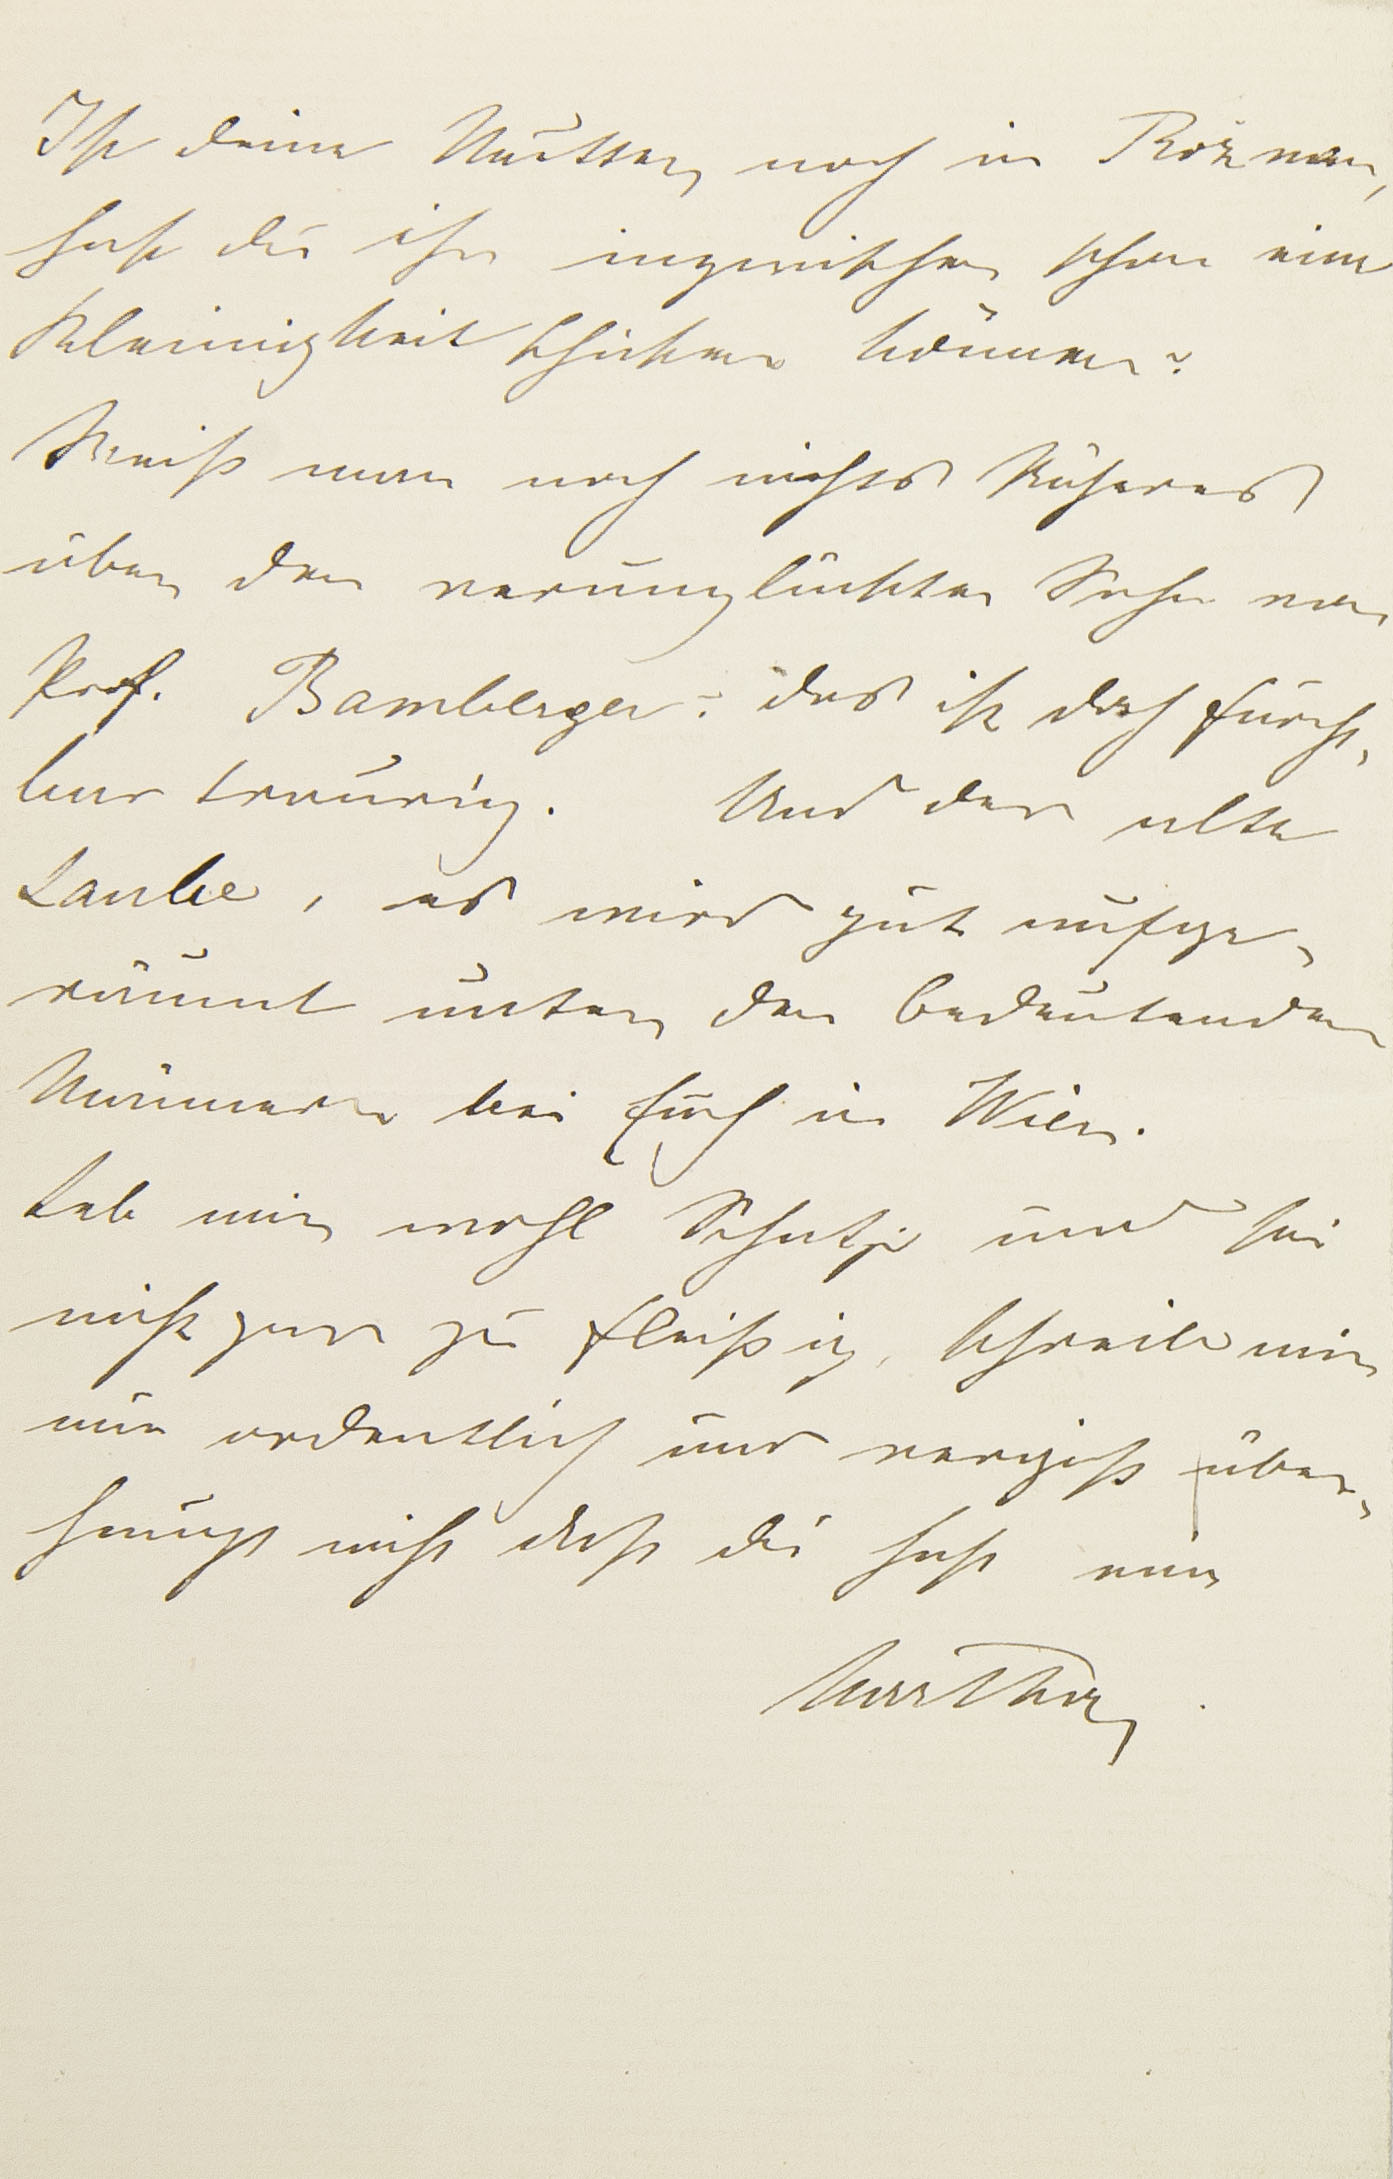 Ist deine Mutter noch in Rožnau,
hast du ihr inzwischen schon eine
Kleinigkeit schicken können?
Weiß man noch nichts Näheres
über den verunglückten Sohn von
Prof. Bamberger? das ist doch furcht-
bar traurig. Und der alte
Laube, es wird gut aufge-
räumt unter den bedeutenden
Männern bei Euch in Wien.
Leb mir wohl Schatzi und sei
nicht gar zu fleißig, schreib mir
nur ordentlich und vergiß über-
haupt nicht daß du hast eine
Martha